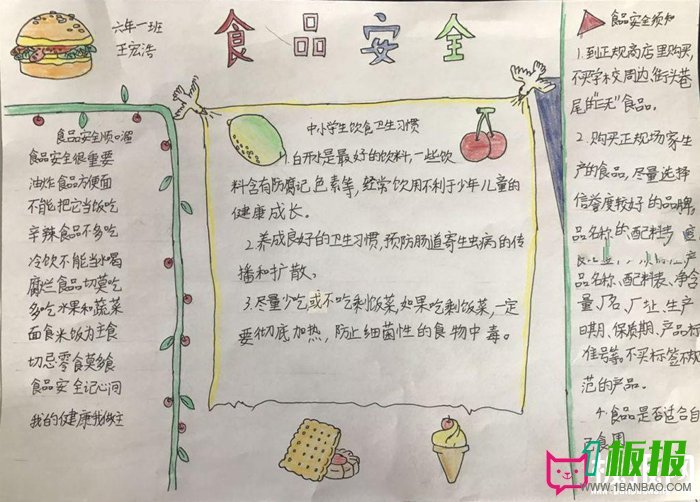 六年一班
王宏浩
食品安全
食品安全顺口溜
食品安全很重要
油炸食品方便面
不能把它当饭吃
辛辣食品不多吃
冷饮不能当水喝
腐烂食品切莫吃
多吃水果和蔬菜
面食米饭为主食
切忌零食莫贪食
食品安全记心间
我的健康我做主
中小学生饮食卫生习惯
1.白开水是最好的饮料,一些饮
料含有防腐记色素等,经常饮用不利于少年儿童的
健康成长。
2.养成良好的卫生习惯,预防肠道寄生虫病的传
播和扩散、
3.尽量少吃或不吃剩饭菜,如果吃剩饭菜,一定
要彻底加热,防止细菌性的食物中毒。
食品安全须知
1.到正规商店里购买,
不买学校周边、街头巷
尾的"三无"食品。
2.购买正规场家生
产的食品,尽量选择
信誉度较好的品牌
品名称的、配料
品名称、配料表、净含
量、厂名、厂址、生产
日期、保质期、产品标
准号等。不买标签不规
范的产品。
4.食品是否适合自
1板报
WWW.1BANBAO.COM